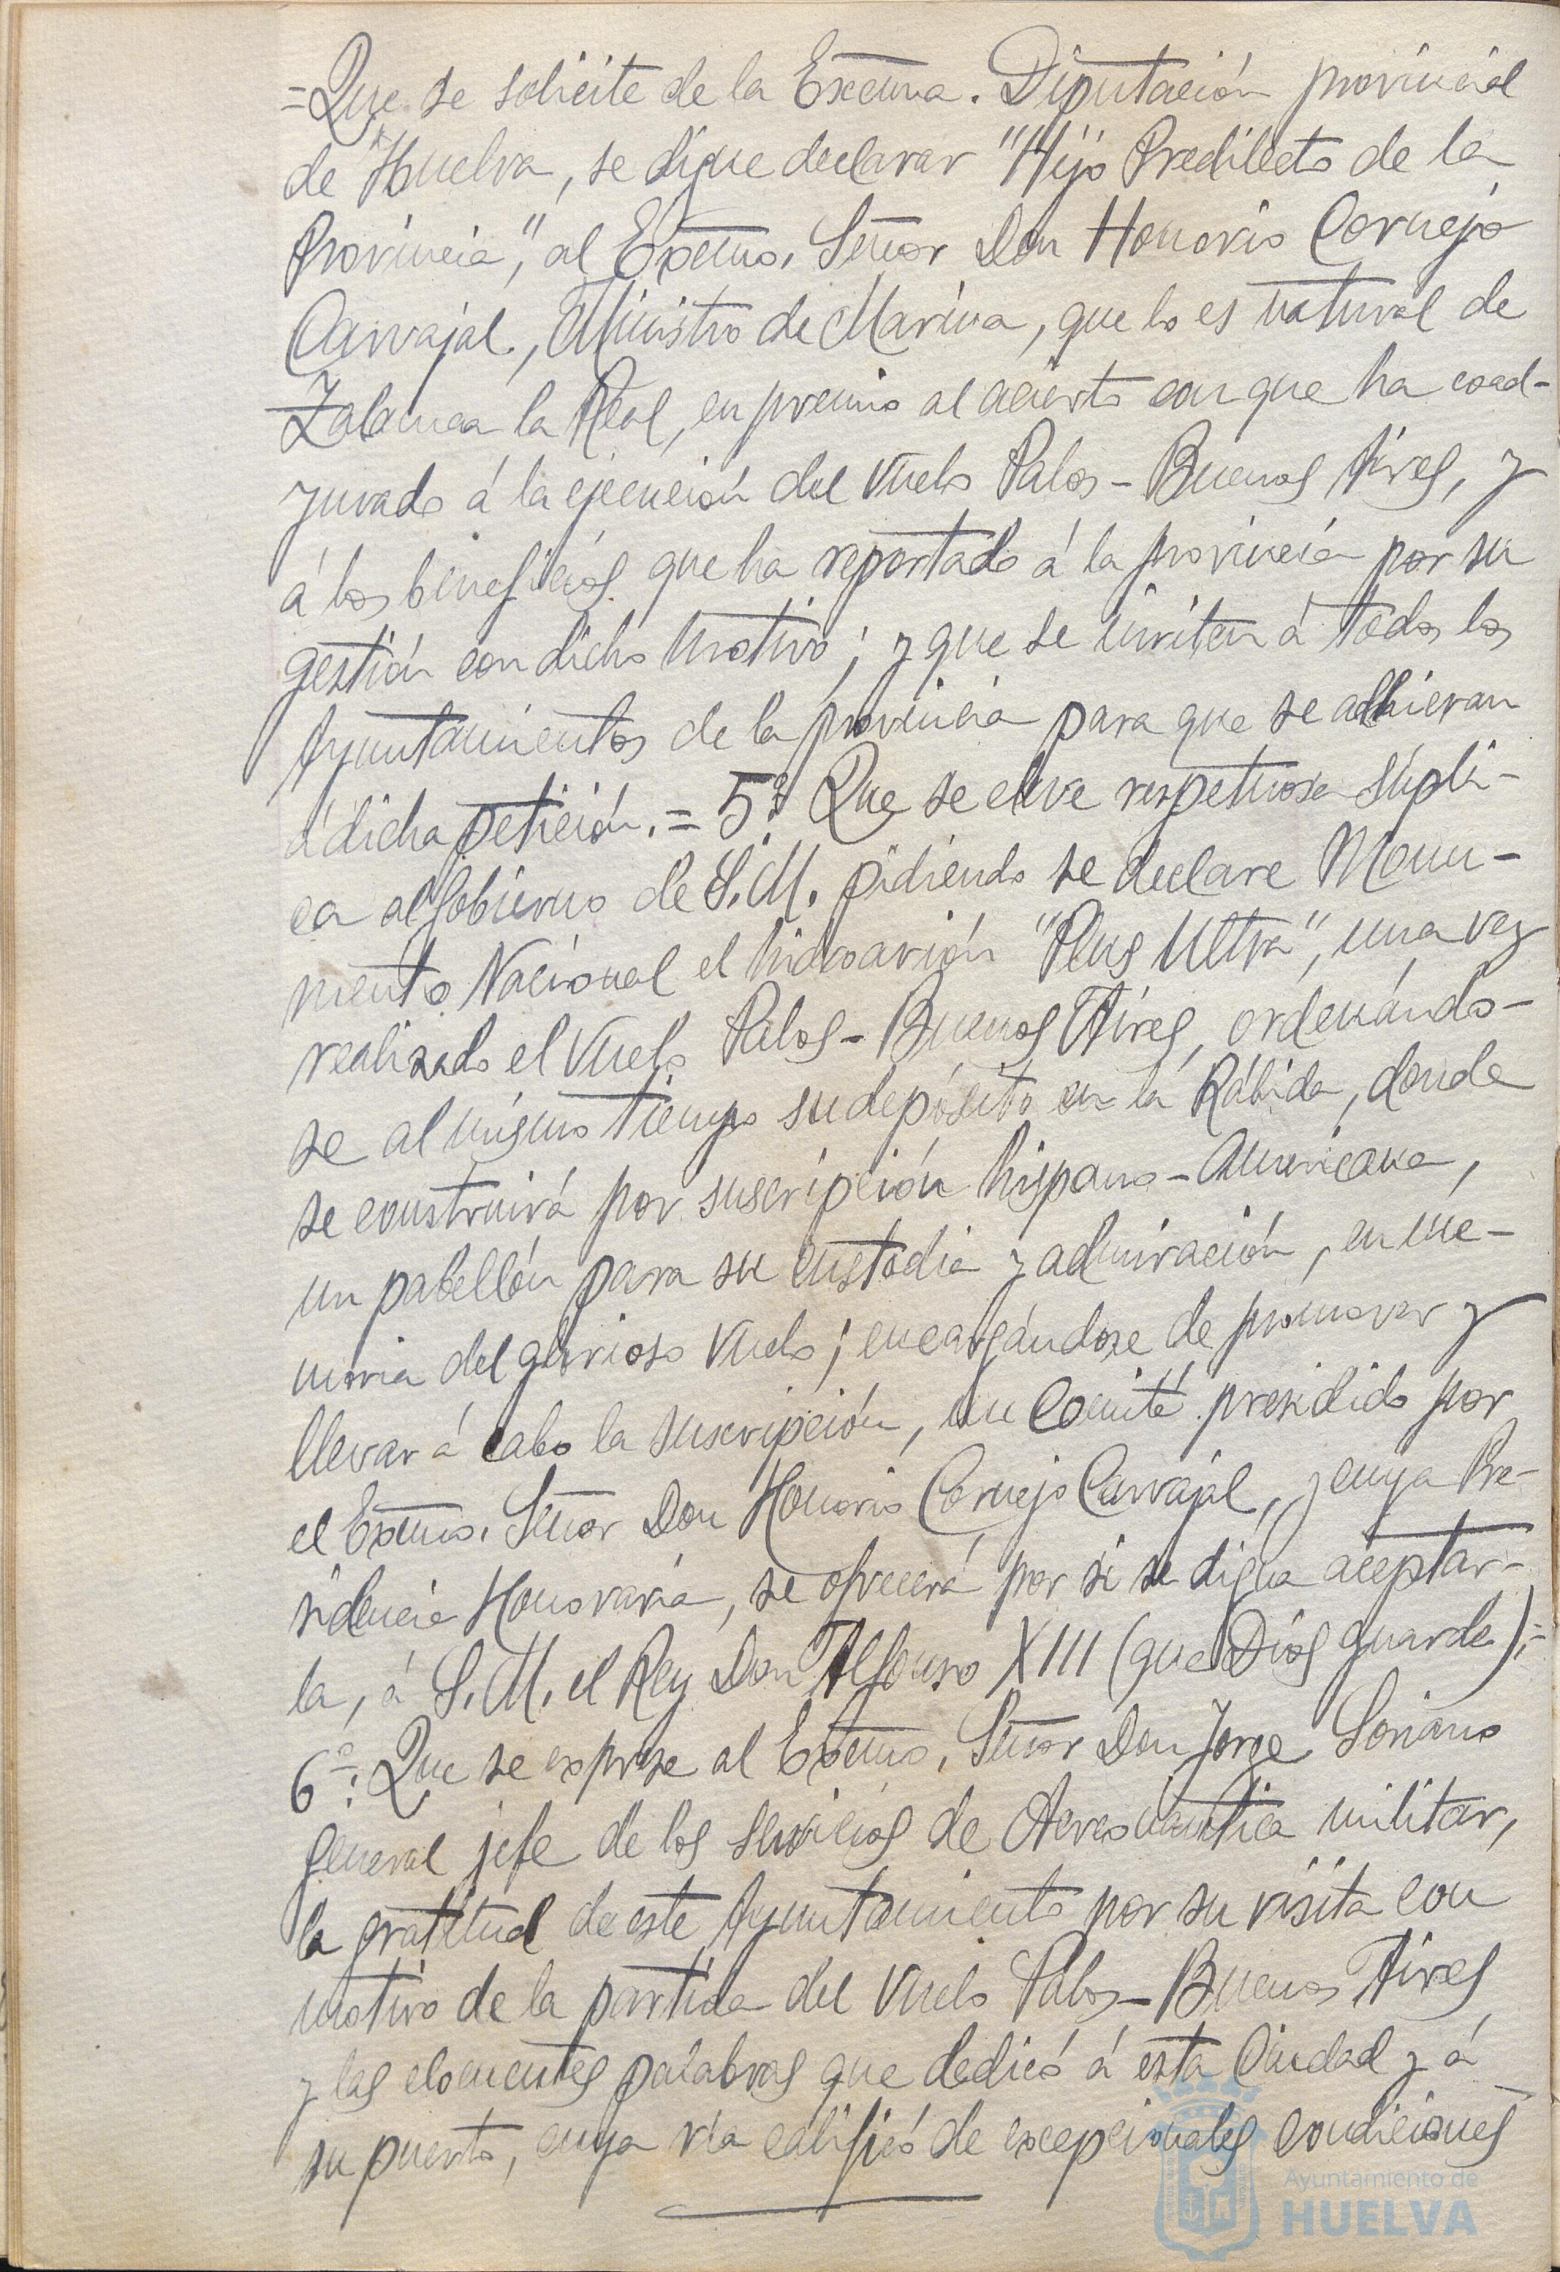 =Que se solicite de la Excma. Diputación provincial
de Huelva, se digne declarar "Hijo Predilecto de la
Provincia", al Excmo. Señor Don Honorio Cornejo
Carvajal, Ministro de Marina, que lo es natural de
Zalamea la Real, en premio al acierto con que ha coad-
yuvado á la ejecución del vuelo Palos-Buenos Aires, y
á los beneficios que ha reportado á la provincia por su
gestión con dicho motivo; y que se inviten á todos los
Ayuntamientos de la provincia para que se adhieran
á dicha petición.= 5º: Que se eleve respetuosa súpli-
ca al Gobierno de S.M. pidiendo se declare Monu-
mento Nacional el hidroavión "Plus Ultra", una vez
realizado el vuelo Palos-Buenos Aires, ordenándo-
se al mismo tiempo su depósito en la Rábida, donde
se construirá por suscripción hispano-americana,
un pabellón para su custodia y admiración, en me-
moria del glorioso vuelo; encargándose de promover y
llevar á cabo la suscripción, un Comité presidido por
el Excmo. Señor Don Honorio Cornejo Carvajal, y cuya Pre-
sidencia Honoraria, se ofrecerá por si se digna aceptar-
la, á S.M. el Rey Don Alfonso XIII (que Dios guarde).=
6º: Que se exprese al Excmo. Señor Don Jorge Soriano
General jefe de los servicios de Aeronáutica militar,
la gratitud de este Ayuntamiento por su visita con
motivo de la partida del vuelo Palos-Buenos Aires
y las elocuentes palabras que dedicó á esta Ciudad y á
su puerto, cuya ría calificó de excepcionales condiciones
Ayuntamiento de
HUELVA